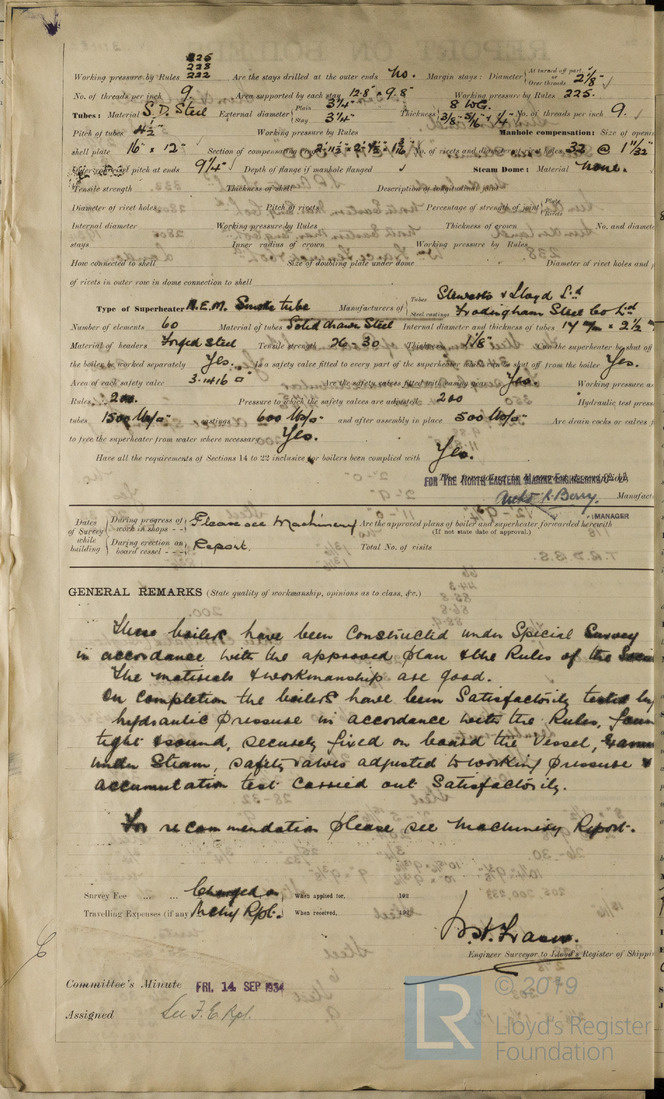 225
228
Working pressure by Rules 222 Are the stays drilled at the outer ends No. Margin stays: Diameter At turned off part, or Over threads 2 1/8"
No. of threads per inch 9. Area supported by each stay 12.8" × 9.8" Working pressure by Rules 225.
Tubes: Material S.D. Steel External diameter Plain 3¼" Stay 3¼" Thickness 8 W.G. 3/8" 5/16" & ¼" No. of threads per inch 9.
Pitch of tubes 4½" Working pressure by Rules Manhole compensation: Size of openin
shell plate 16" × 12" Section of compensating No. of rivets and diameter of rivet holes 32 @ 1 11/32"
pitch at ends 9¼" Depth of flange if manhole flanged Steam Dome: Material None.
Tensile strength Thickness of shell Description of longitudinal joint
Diameter of rivet holes Pitch of rivets Percentage of strength of joint Plate Rivets
Internal diameter Working pressure by Rules Thickness of crown No. and diamete
stays Inner radius of crown Working pressure by Rules
How connected to shell Size of doubling plate under dome Diameter of rivet holes and p
of rivets in outer row in dome connection to shell
Type of Superheater N.E.M. Smoke tube Manufacturers of Tubes Stewarts & Lloyd Ld Steel castings Frodingham Steel Co Ltd
Number of elements 60 Material of tubes Solid drawn Steel Internal diameter and thickness of tubes 17 m/m × 2½ m
Material of headers Forged Steel Tensile strength 26-30 Thickness 1 1/8" Can the superheater be shut off
the boiler be worked separately Yes. Is a safety valve fitted to every part of the superheater which can be shut off from the boiler Yes.
Area of each safety valve 3.1416 □" Are the safety valves fitted with easing gear Yes. Working pressure as
Rules 200. Pressure to which the safety valves are adjusted 200 Hydraulic test press
tubes 1500 lbs/□" castings 600 lbs/□" and after assembly in place 500 lbs/□" Are drain cocks or valves f
to free the superheater from water where necessary Yes.
Have all the requirements of Sections 14 to 22 inclusive for boilers been complied with Yes.
FOR THE NORTH EASTERN MARINE ENGINEERING Co. Ld.
Berry. Manufac
MANAGER
Dates of Survey while building During progress of work in shops - - Please see Machinery Are the approved plans of boiler and superheater forwarded herewith (If not state date of approval.)
During erection on board vessel - - - Report. Total No. of visits
GENERAL REMARKS (State quality of workmanship, opinions as to class, &c.)
These boilers have been constructed under Special Survey
in accordance with the approved plan & the Rules of the Socie
The materials & workmanship are good.
On completion the boilers have been satisfactorily tested by
hydraulic pressure in accordance with the Rules, foun
tight & sound, securely fixed on board the Vessel, Exami
under Steam, safety valves adjusted to working pressure &
accumulation test carried out satisfactorily.
For recommendation please see Machinery Report.
Survey Fee ... ... Charged on When applied for, 192
Travelling Expenses (if any) Mchy Rpt. When received, 192
Engineer Surveyor to Lloyd's Register of Shippin
Committee's Minute FRI. 14 SEP 1934
Assigned See F.E. Rpt.
© 2019
LR
Lloyd's Register
Foundation